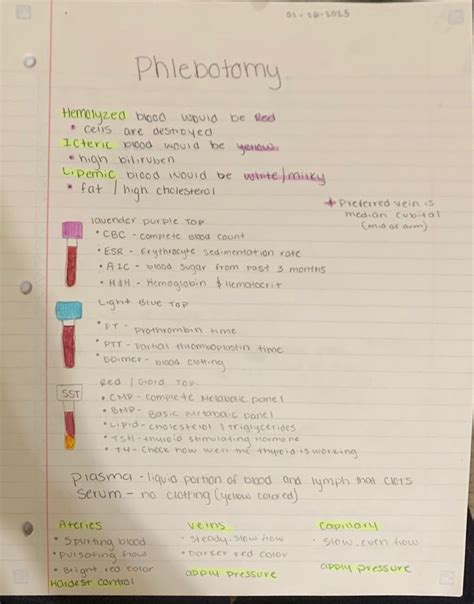 01-16-2023
Phlebotomy
Hemolyzed blood would be Red
• cells are destroyed
Icteric blood would be yellow.
• high biliruben
Lipemic blood would be white/milky
• fat / high cholesterol
* Preferred vein is
median cubital
(mid of arm)
lavender purple Top
• CBC - complete blood count
• ESR - Erythrocyte sedimentation rate
• A1C - blood sugar from past 3 months
• H&H - Hemoglobin & Hematocrit
Light Blue Top
• PT - prothrombin time
• PTT - partial thromboplastin time
• DDimer - blood clotting
Red / Gold Top
SST
• CMP - complete Metabolic panel
• BMP - Basic Metabolic panel
• Lipid - cholesterol & triglycerides
• TSH - thyroid stimulating Hormone
• T4 - Check how well the thyroid is working
plasma - liquid portion of blood and lymph that clots
Serum - no clotting (yellow colored)
Ateries
• Spurting blood
• pulsating flow
• Bright red color
Hardest control
Veins
• Steady, slow flow
• Darker red color
apply pressure
Capillary
• Slow, even flow
apply pressure